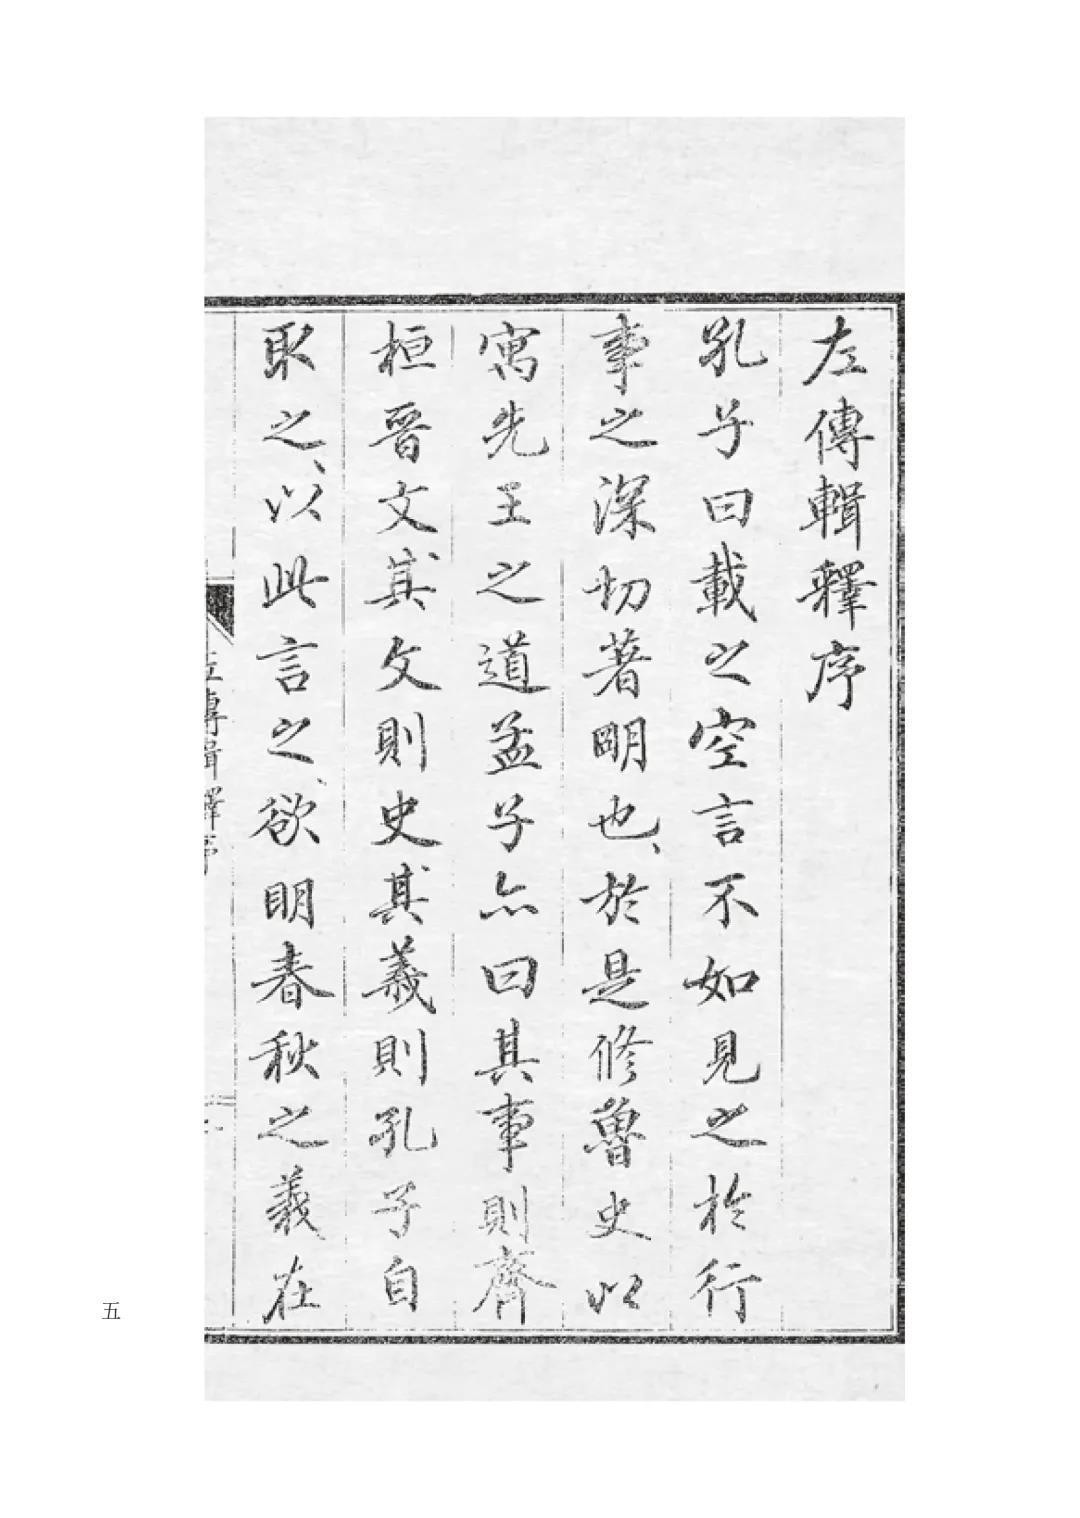 左傳輯釋序
孔子曰載之空言不如見之於行
事之深切著明也、於是修魯史以
寓先王之道孟子亦曰其事則齊
桓晉文其文則史其義則孔子自
取之、以此言之、欲明春秋之義在
左傳輯釋序
一
五